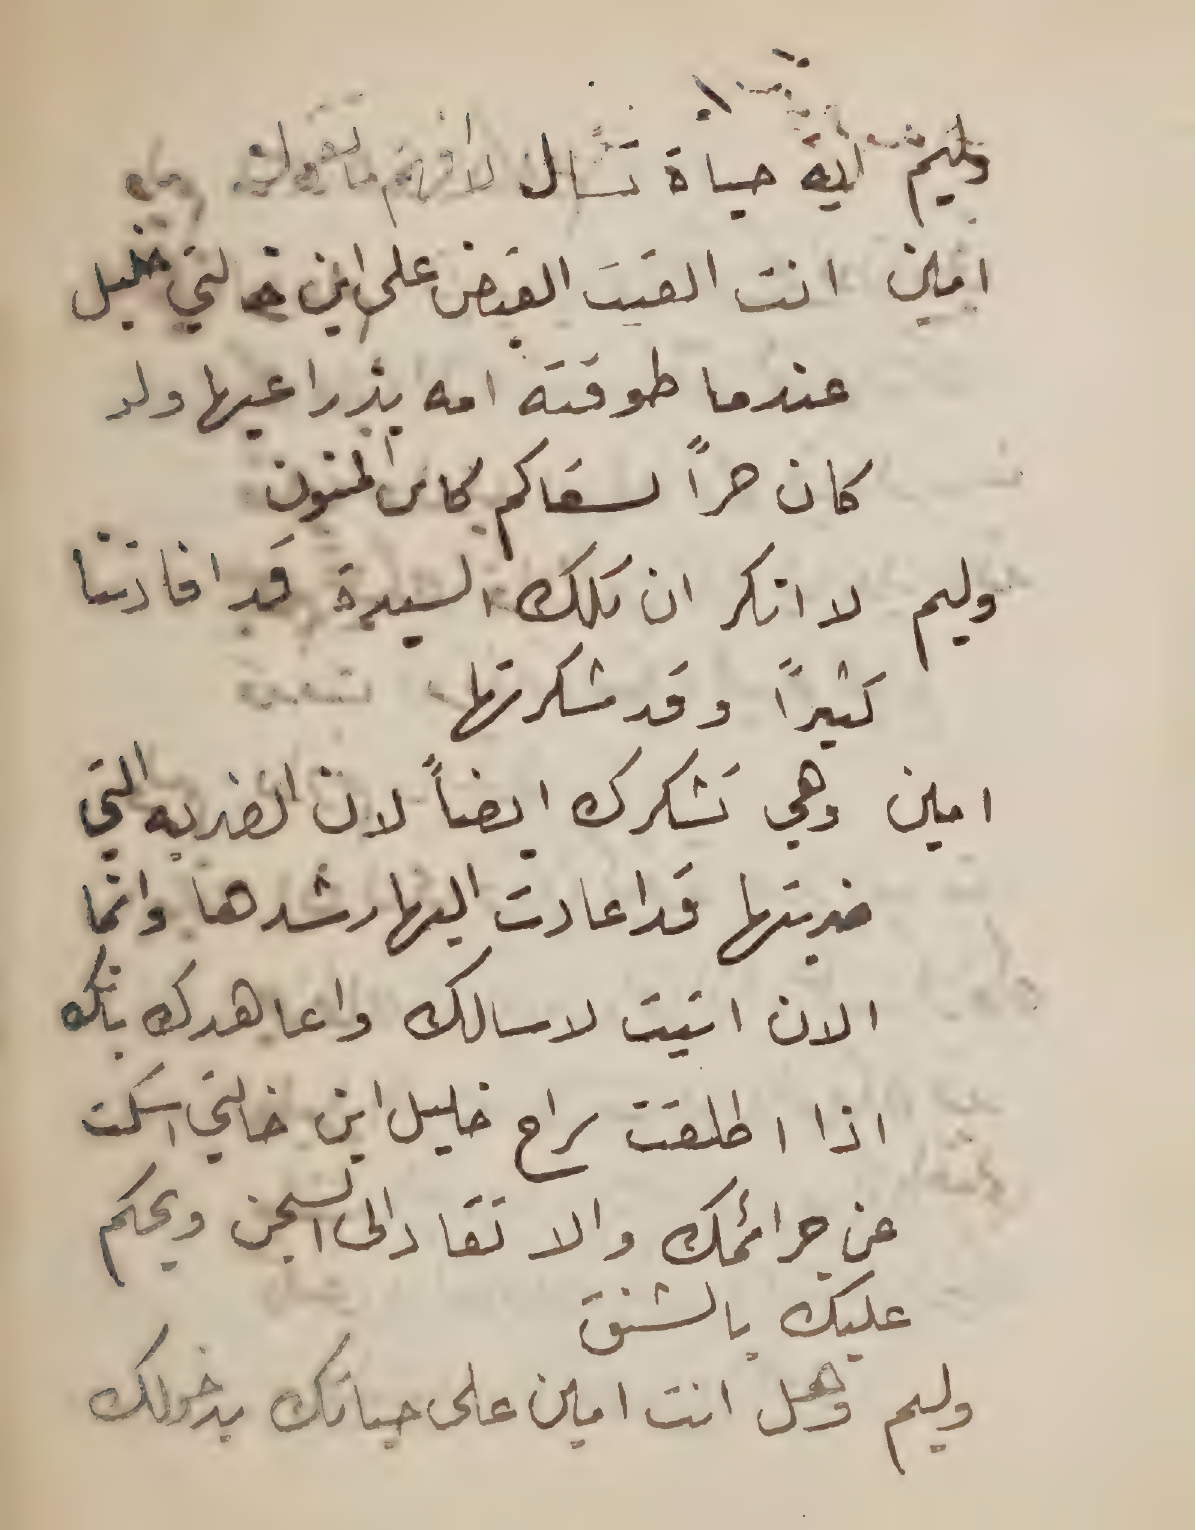 وليم اية حياة تسأل لا افهم ما تقول
امين انت القيت القبض على ابن خالتي خليل
عندما طوقته امه بذراعيها ولو
كان حراً لسقاكم كاس المنون
وليم لا انكر ان تلك السيدة قد افادتنا
كثيراً وقد شكرتها
امين وهي تشكرك ايضاً لان الضربه التي
ضربتها قد اعادت اليها رشدها وانما
الان اتيت لاسالك واعاهدك بانك
اذا اطلقت سراح خليل ابن خالتي اسكت
عن جرائمك والا تقاد الى السجن ويحكم
عليك بالشنق
وليم وهل انت امين على حياتك بدخولك